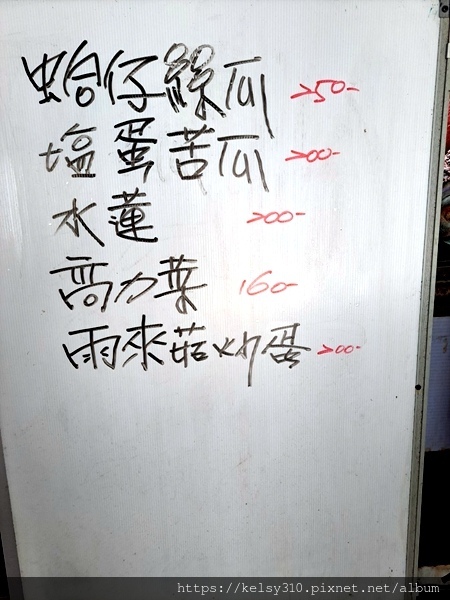 蛤仔絲瓜 250-
塩蛋苦瓜 200-
水蓮 200-
高力菜 160-
雨來菇炒蛋 200-
https://kelsy310.pixnet.net/album